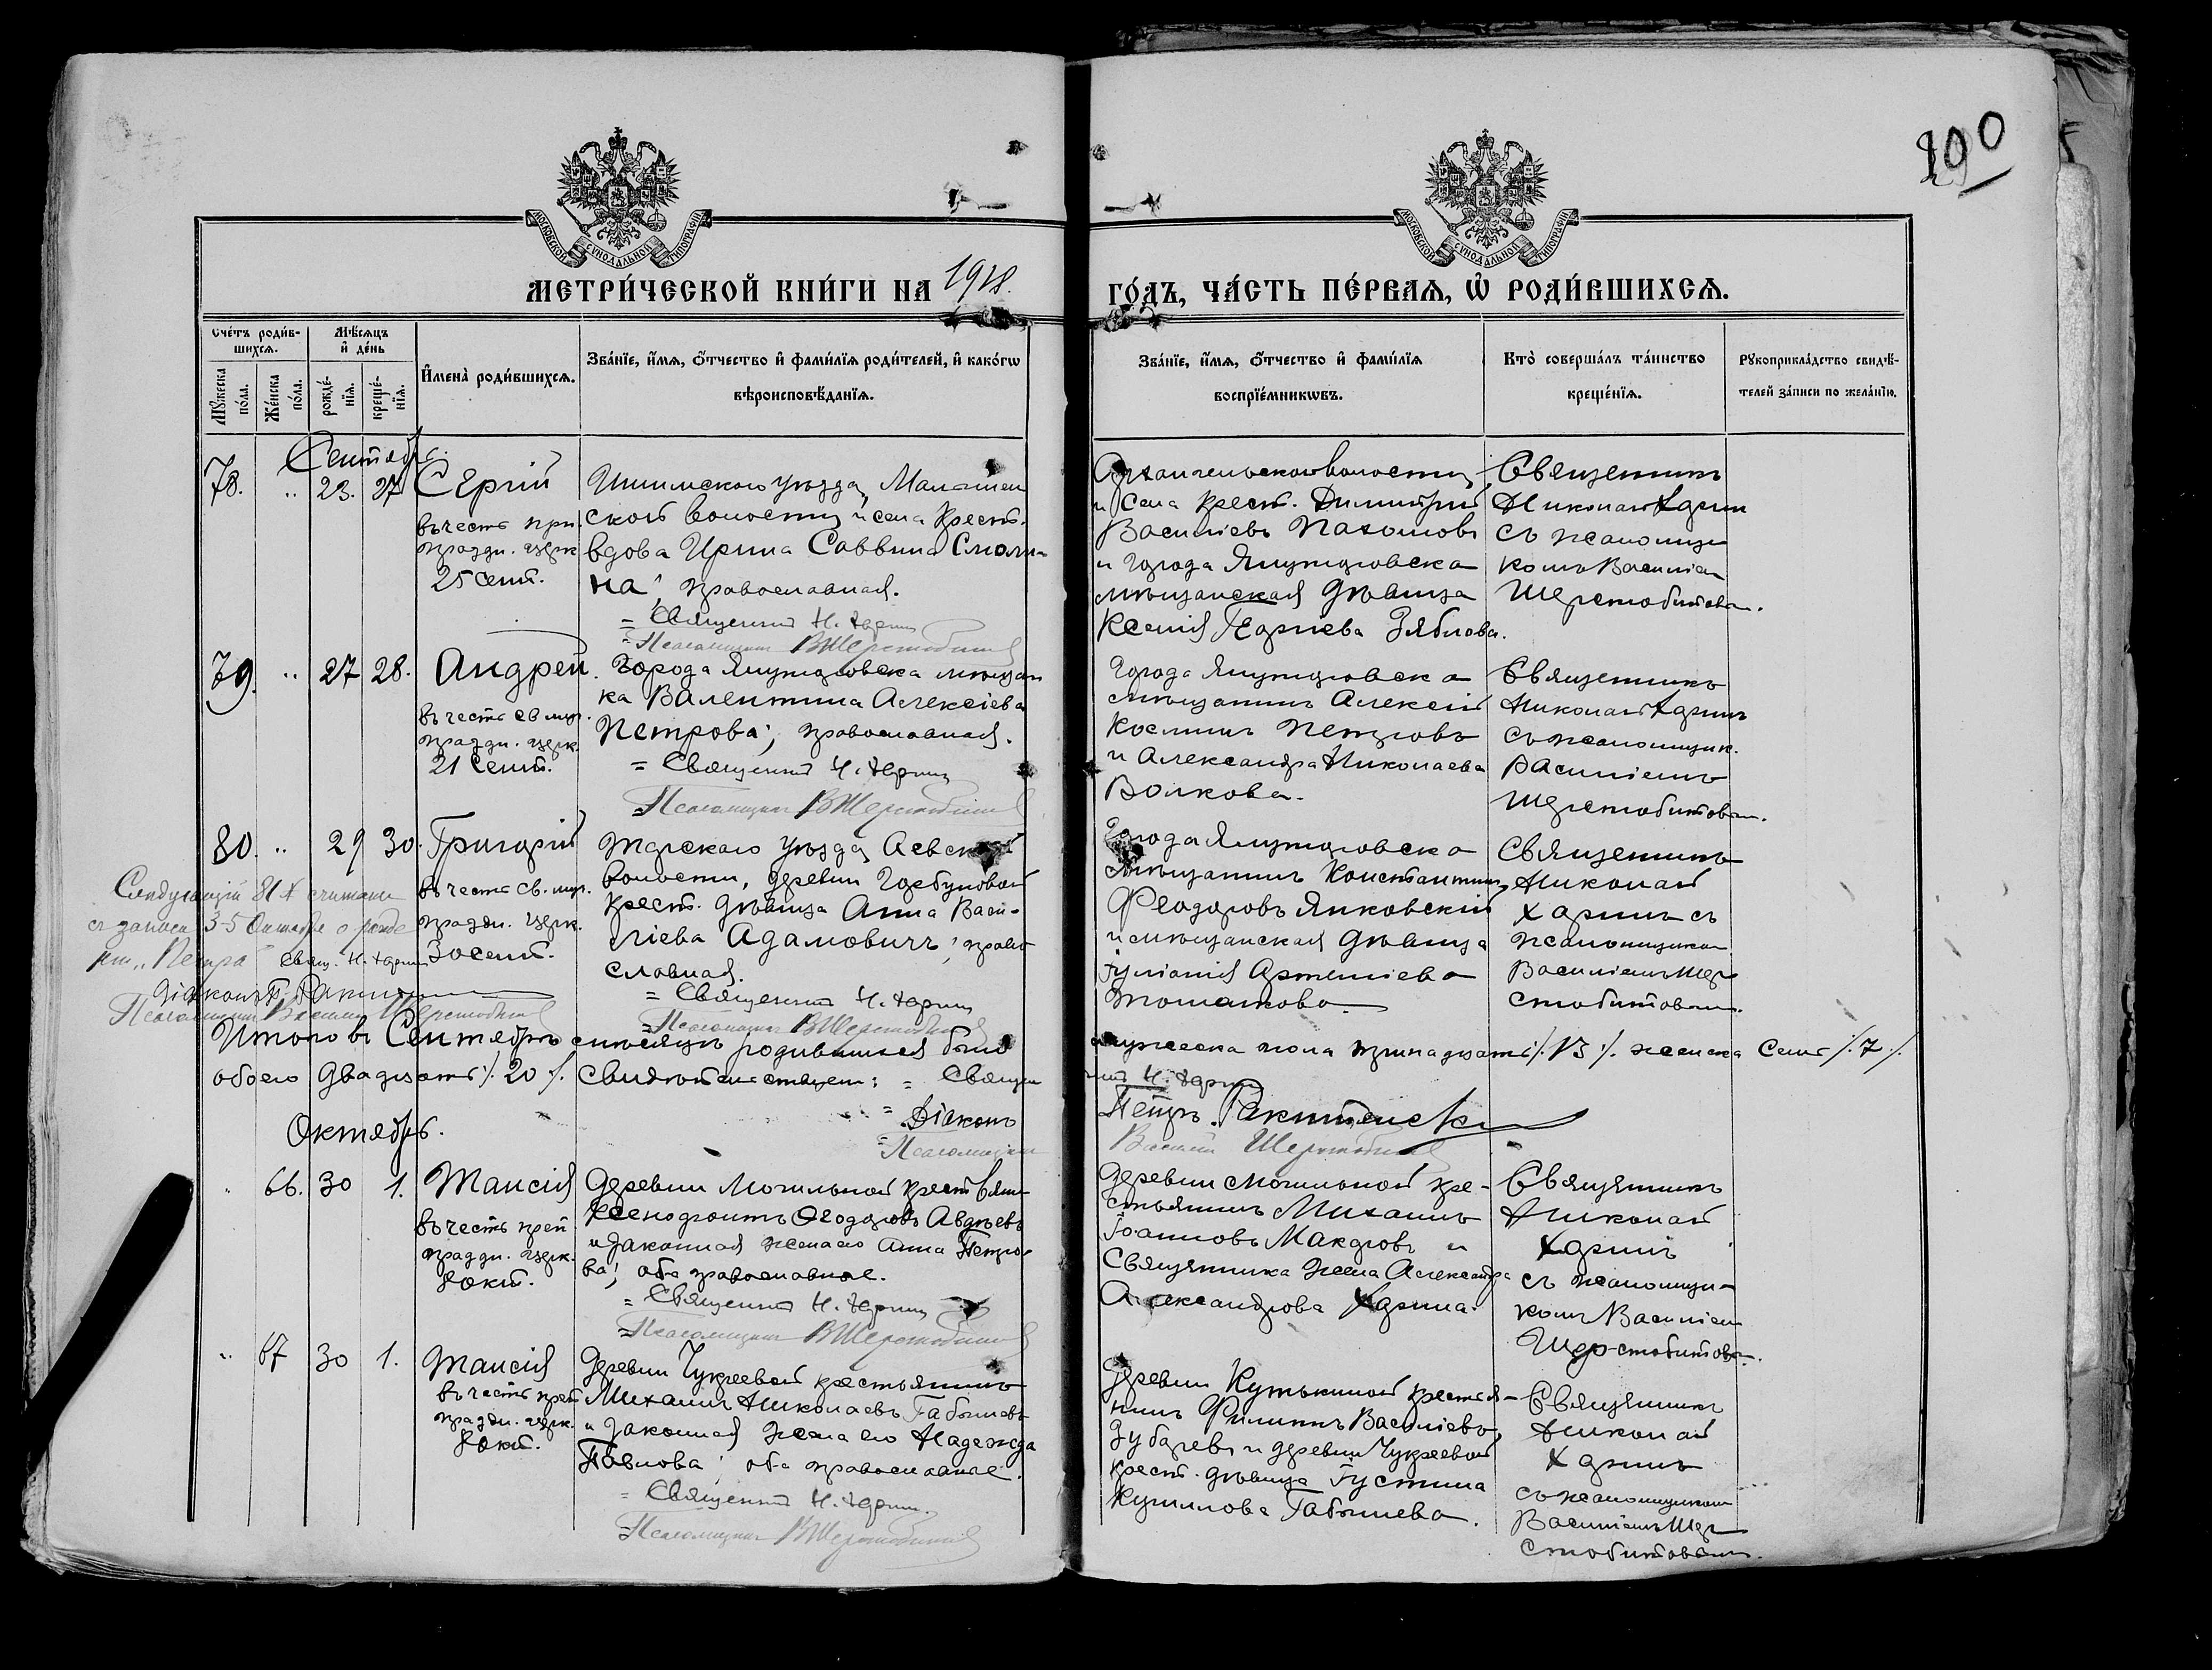 290
МОСКОВСКОЙ СѴНОДАЛЬНОЙ ТИПОГРАФІИ
МОСКОВСКОЙ СѴНОДАЛЬНОЙ ТИПОГРАФІИ
МЕТРИ́ЧЕСКОЙ КНИ́ГИ НА 1918. ГО́ДЪ, ЧА́СТЬ ПЕ́РВАѦ, Ѡ РОДИ́ВШИХСѦ.
Счетъ роди́вшихсѧ.
Мꙋжеска по́ла.
Же́нска по́ла.
Мѣсѧцъ и҆ де́нь
рожде́нїѧ.
креще́нїѧ.
И҆мена̀ роди́вшихсѧ.
Зва́нїе, и҆́мѧ, ѻ҆́тчество и҆ фами́лїѧ роди́телей, и҆ како́гѡ
вѣроисповѣ́данїѧ.
Зва́нїе, и҆́мѧ, ѻ҆́тчество и҆ фами́лїѧ
воспрїе́мникѡвъ.
Кто̀ соверша́лъ та́инство
креще́нїѧ.
Рꙋкоприкла́дство свидѣ́-
телей за́писи по жела́нїю.
Сентябрь.
78. " 23. 27
Сергій
въ честь пр.
праздн. церк.
25 сент.
Ишимскаго уѣзда,
ской волости и села крест.
вдова Ирина Саввина Смоли-
на; православная.
= Священникъ Н. Хоринъ
= Псаломщикъ В Шерстобитовъ
Архангельской волости
и села крест. Димитрій
Василіевъ Пахомовъ
и города Ялуторовска
мѣщанская дѣвица
Ксенія Георгіева Зяблова.
Священникъ
Николай Хоринъ
съ псаломщи-
комъ Василіем
Шерстобитовым.
79. " 27 28.
Андрей.
въ честь св. муч.
праздн. церк.
21 Сент.
Города Ялуторовска мѣщан
ка Валентина Алексіева
Петрова; православная.
= Священникъ Н. Хоринъ
Псаломщикъ В Шерстобитовъ
Города Ялуторовска
мѣщанинъ Алексій
Косминъ Петровъ
и Александра Николаева
Волкова.
Священникъ
Николай Хоринъ
съ псаломщик.
Василіемъ
Шерстобитовым.
80. " 29 30.
Григорій
въ честь св. муч.
праздн. церк.
30 сент.
Тарскаго уѣзда,
волости, деревни Горбуновой
крест. дѣвица Анна Васи-
ліева Адамовичъ; право
славная.
= Священникъ Н. Хоринъ
= Псаломщикъ В Шерстобитовъ
Города Ялуторовска
мѣщанинъ Константинъ
Ѳеодоровъ Янковскій
и мѣщанская дѣвица
Іуліанія Артеміева
Толмакова.
Священникъ
Николай
Хоринъ съ
псаломщиком
Василіемъ Шер
стобитовым.
Следующій 81 № считать
съ записи 3-5 Октября о рожд
"Петра" Свящ. Н. Хоринъ
Діаконъ П. Ракитинскій
Псаломщикъ Василій Шерстобитовъ
Итого въ Сентябрѣ мѣсяцѣ родившихся было мужеска пола тринадцать /. 13 /. женска семь /. 7 /.
обоего двадцать /. 20 /. Свидѣтельствуемъ: = Священ никъ Н. Хоринъ
= Діаконъ Петръ Ракитинскій
= Псаломщикъ Василій Шерстобитовъ
Октябрь.
" 66. 30 1.
Таисія
въ честь преп
праздн. церк.
8 окт.
Деревни Могильной крестьянинъ
Ксенофонтъ Ѳеодоровъ Авдѣевъ
и законная жена его Анна Петро
ва; оба православные.
= Священникъ Н. Хоринъ
= Псаломщикъ В Шерстобитовъ
Деревни Могильной кре-
стьянинъ Михаилъ
Іоанновъ Макаровъ и
Священника жена Александра
Александрова Хорина.
Священникъ
Николай
Хоринъ
съ псаломщи-
комъ Василіем
Шерстобитовым.
" 67 30 1.
Таисія
въ честь преп
праздн. церк.
8 окт.
Деревни Чукреевой крестьянинъ
Михаилъ Николаевъ Габышевъ
и законная жена его Надежда
Павлова; оба православные.
= Священникъ Н. Хоринъ.
Псаломщикъ В Шерстобитовъ
Деревни Кутькиной крестья-
нинъ Филиппъ Василіевъ
Зубаревъ и деревни Чукреевой
крест. дѣвица Іустина
Габышева.
Священникъ
Николай
Хоринъ
съ псаломщиком
Василіемъ Шер
стобитовым.